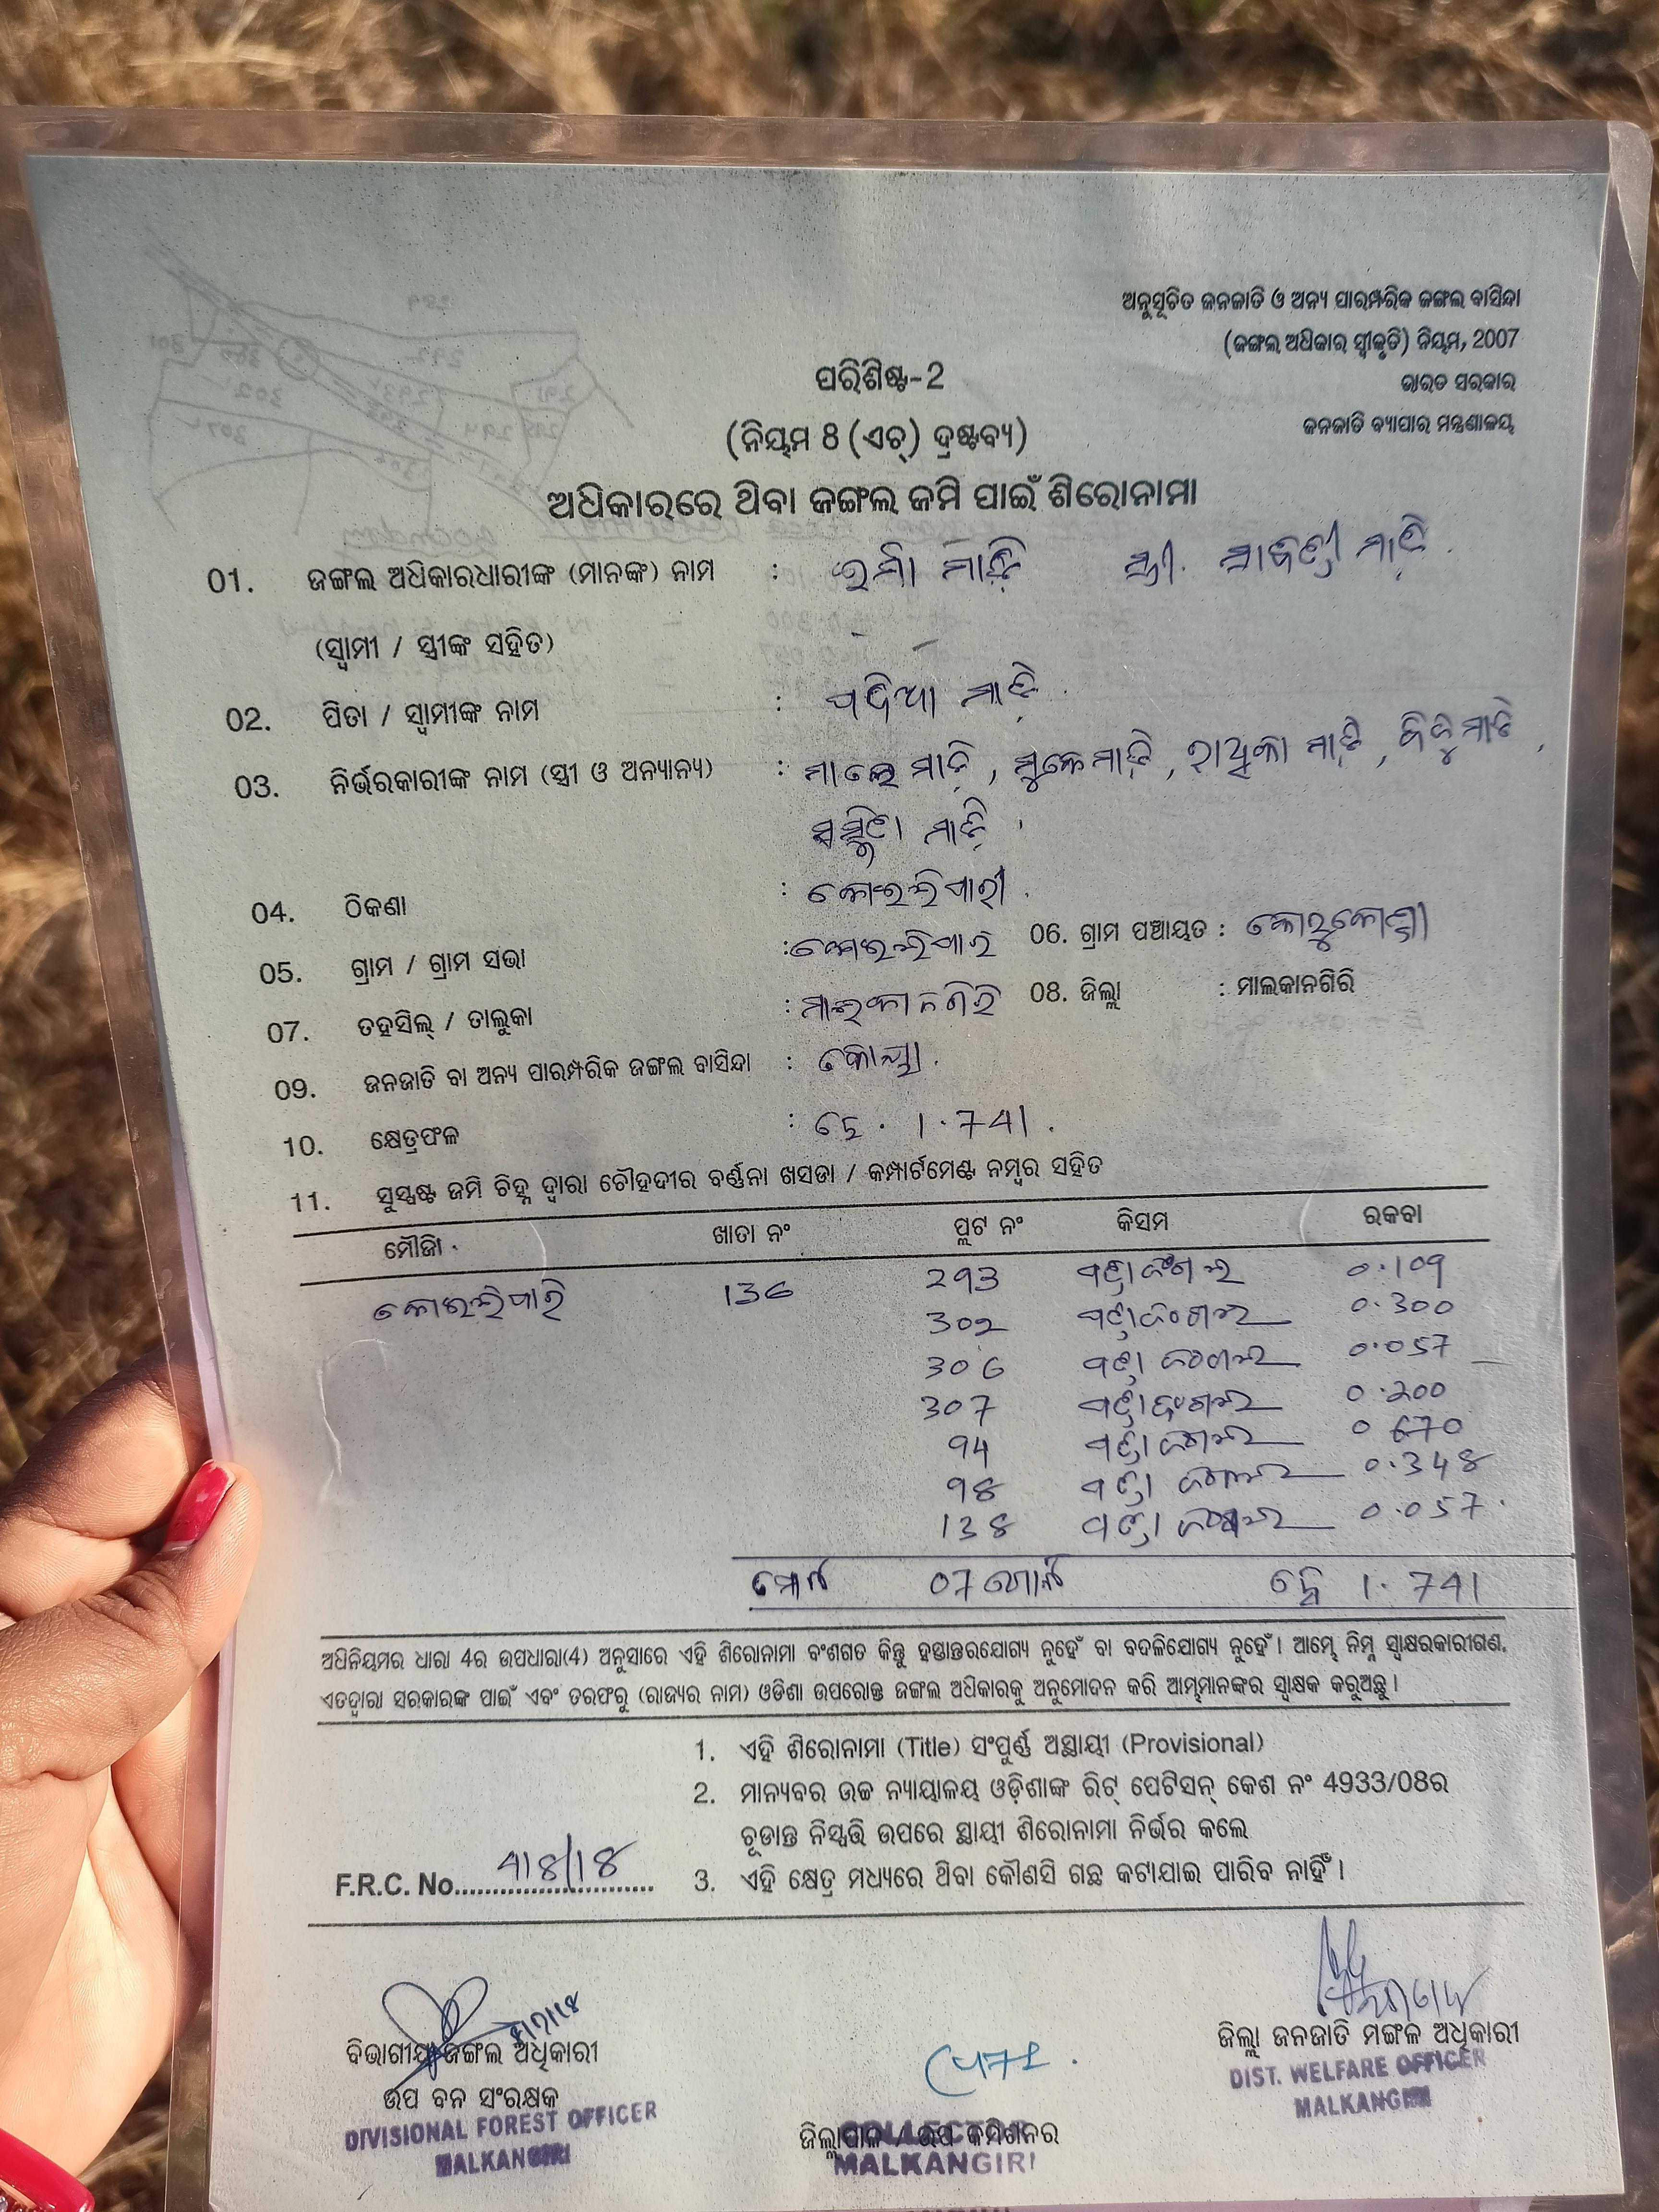 ଅନୁସୂଚିତ ଜନଜାତି ଓ ଅନ୍ୟ ପାରମ୍ପରିକ ଜଙ୍ଗଲ ବାସିନ୍ଦା
(ଜଙ୍ଗଲ ଅଧିକାର ସ୍ୱୀକୃତି) ନିୟମ, 2007
ଭାରତ ସରକାର
ଜନଜାତି ବ୍ୟାପାର ମନ୍ତ୍ରଣାଳୟ
ପରିଶିଷ୍ଟ-2
(ନିୟମ 8 (ଏଚ୍) ଦ୍ରଷ୍ଟବ୍ୟ)
ଅଧିକାରରେ ଥିବା ଜଙ୍ଗଲ ଜମି ପାଇଁ ଶିରୋନାମା
01. ଜଙ୍ଗଲ ଅଧିକାରଧାରୀଙ୍କ (ମାନଙ୍କ) ନାମ : ଇର୍ମା ମାଡ଼ି ସ୍ତ୍ରୀ. ମାଡ଼ି
(ସ୍ୱାମୀ / ସ୍ତ୍ରୀଙ୍କ ସହିତ)
02. ପିତା / ସ୍ୱାମୀଙ୍କ ନାମ : ପଦିଆ ମାଡ଼ି
03. ନିର୍ଭରକାରୀଙ୍କ ନାମ (ସ୍ତ୍ରୀ ଓ ଅନ୍ୟାନ୍ୟ) : ମାଲେ ମାଡ଼ି, ମୁକେ ମାଡ଼ି, ରାଧିକା ମାଡ଼ି, ମାଡ଼ି,
ମାଡ଼ି
04. ଠିକଣା : କୋଇଲିପାରୀ
05. ଗ୍ରାମ / ଗ୍ରାମ ସଭା : କୋଇଲିପାରି 06. ଗ୍ରାମ ପଞ୍ଚାୟତ : କୋରୁକୋଣ୍ଡା
07. ତହସିଲ୍ / ତାଲୁକା : ମାଲକାନଗିରି 08. ଜିଲ୍ଲା : ମାଲକାନଗିରି
09. ଜନଜାତି ବା ଅନ୍ୟ ପାରମ୍ପରିକ ଜଙ୍ଗଲ ବାସିନ୍ଦା : କୋୟା.
10. କ୍ଷେତ୍ରଫଳ : ହେ. 1.741.
11. ସୁସ୍ପଷ୍ଟ ଜମି ଚିହ୍ନ ଦ୍ୱାରା ଚୌହଦୀର ବର୍ଣ୍ଣନା ଖସଡା / କମ୍ପାର୍ଟମେଣ୍ଟ ନମ୍ବର ସହିତ
ମୌଜା ଖାତା ନଂ ପ୍ଲଟ ନଂ କିସମ ରକବା
କୋଇଲିପାରି 136 293 ପତ୍ରାଜଂଗଲ 0.109
302 ପତ୍ରାଜଂଗଲ 0.300
306 ପତ୍ରା ଜଂଗଲ 0.057
307 ପତ୍ରାଜଂଗଲ 0.200
94 ପତ୍ରା ଜଂଗଲ 0.670
98 ପତ୍ରା ଜଂଗଲ 0.348
138 ପତ୍ରା ଜଂଗଲ 0.057
ମୋଟ 07 ଗୋଟି ହେ 1.741
ଅଧିନିୟମର ଧାରା 4ର ଉପଧାରା(4) ଅନୁସାରେ ଏହି ଶିରୋନାମା ବଂଶଗତ କିନ୍ତୁ ହସ୍ତାନ୍ତରଯୋଗ୍ୟ ନୁହେଁ ବା ବଦଳିଯୋଗ୍ୟ ନୁହେଁ। ଆମ୍ଭେ ନିମ୍ନ ସ୍ୱାକ୍ଷରକାରୀଗଣ,
ଏତଦ୍ୱାରା ସରକାରଙ୍କ ପାଇଁ ଏବଂ ତରଫରୁ (ରାଜ୍ୟର ନାମ) ଓଡିଶା ଉପରୋକ୍ତ ଜଙ୍ଗଲ ଅଧିକାରକୁ ଅନୁମୋଦନ କରି ଆମ୍ଭମାନଙ୍କର ସ୍ୱାକ୍ଷକ କରୁଅଛୁ।
1. ଏହି ଶିରୋନାମା (Title) ସଂପୁର୍ଣ୍ଣ ଅସ୍ଥାୟୀ (Provisional)
2. ମାନ୍ୟବର ଉଚ୍ଚ ନ୍ୟାୟାଳୟ ଓଡ଼ିଶାଙ୍କ ରିଟ୍ ପେଟିସନ୍ କେଶ ନଂ 4933/08ର
ଚୂଡାନ୍ତ ନିସ୍ପତ୍ତି ଉପରେ ସ୍ଥାୟୀ ଶିରୋନାମା ନିର୍ଭର କଲେ
F.R.C. No. 3. ଏହି କ୍ଷେତ୍ର ମଧ୍ୟରେ ଥିବା କୌଣସି ଗଛ କଟାଯାଇ ପାରିବ ନାହିଁ।
ବିଭାଗୀୟ ଜଙ୍ଗଲ ଅଧିକାରୀ
ଉପ ବନ ସଂରକ୍ଷକ
DIVISIONAL FOREST OFFICER
MALKANGIRI
ଜିଲ୍ଲାପାଳ / ଉପ କମିଶନର
COLLECTOR
MALKANGIRI
ଜିଲ୍ଲା ଜନଜାତି ମଙ୍ଗଳ ଅଧିକାରୀ
DIST. WELFARE OFFICER
MALKANGIRI